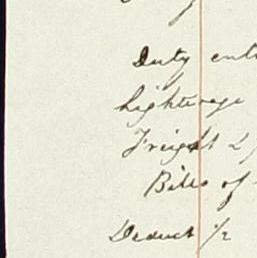 Duty ent
Lighterage
Freight
Bills of
Deduct 1/2